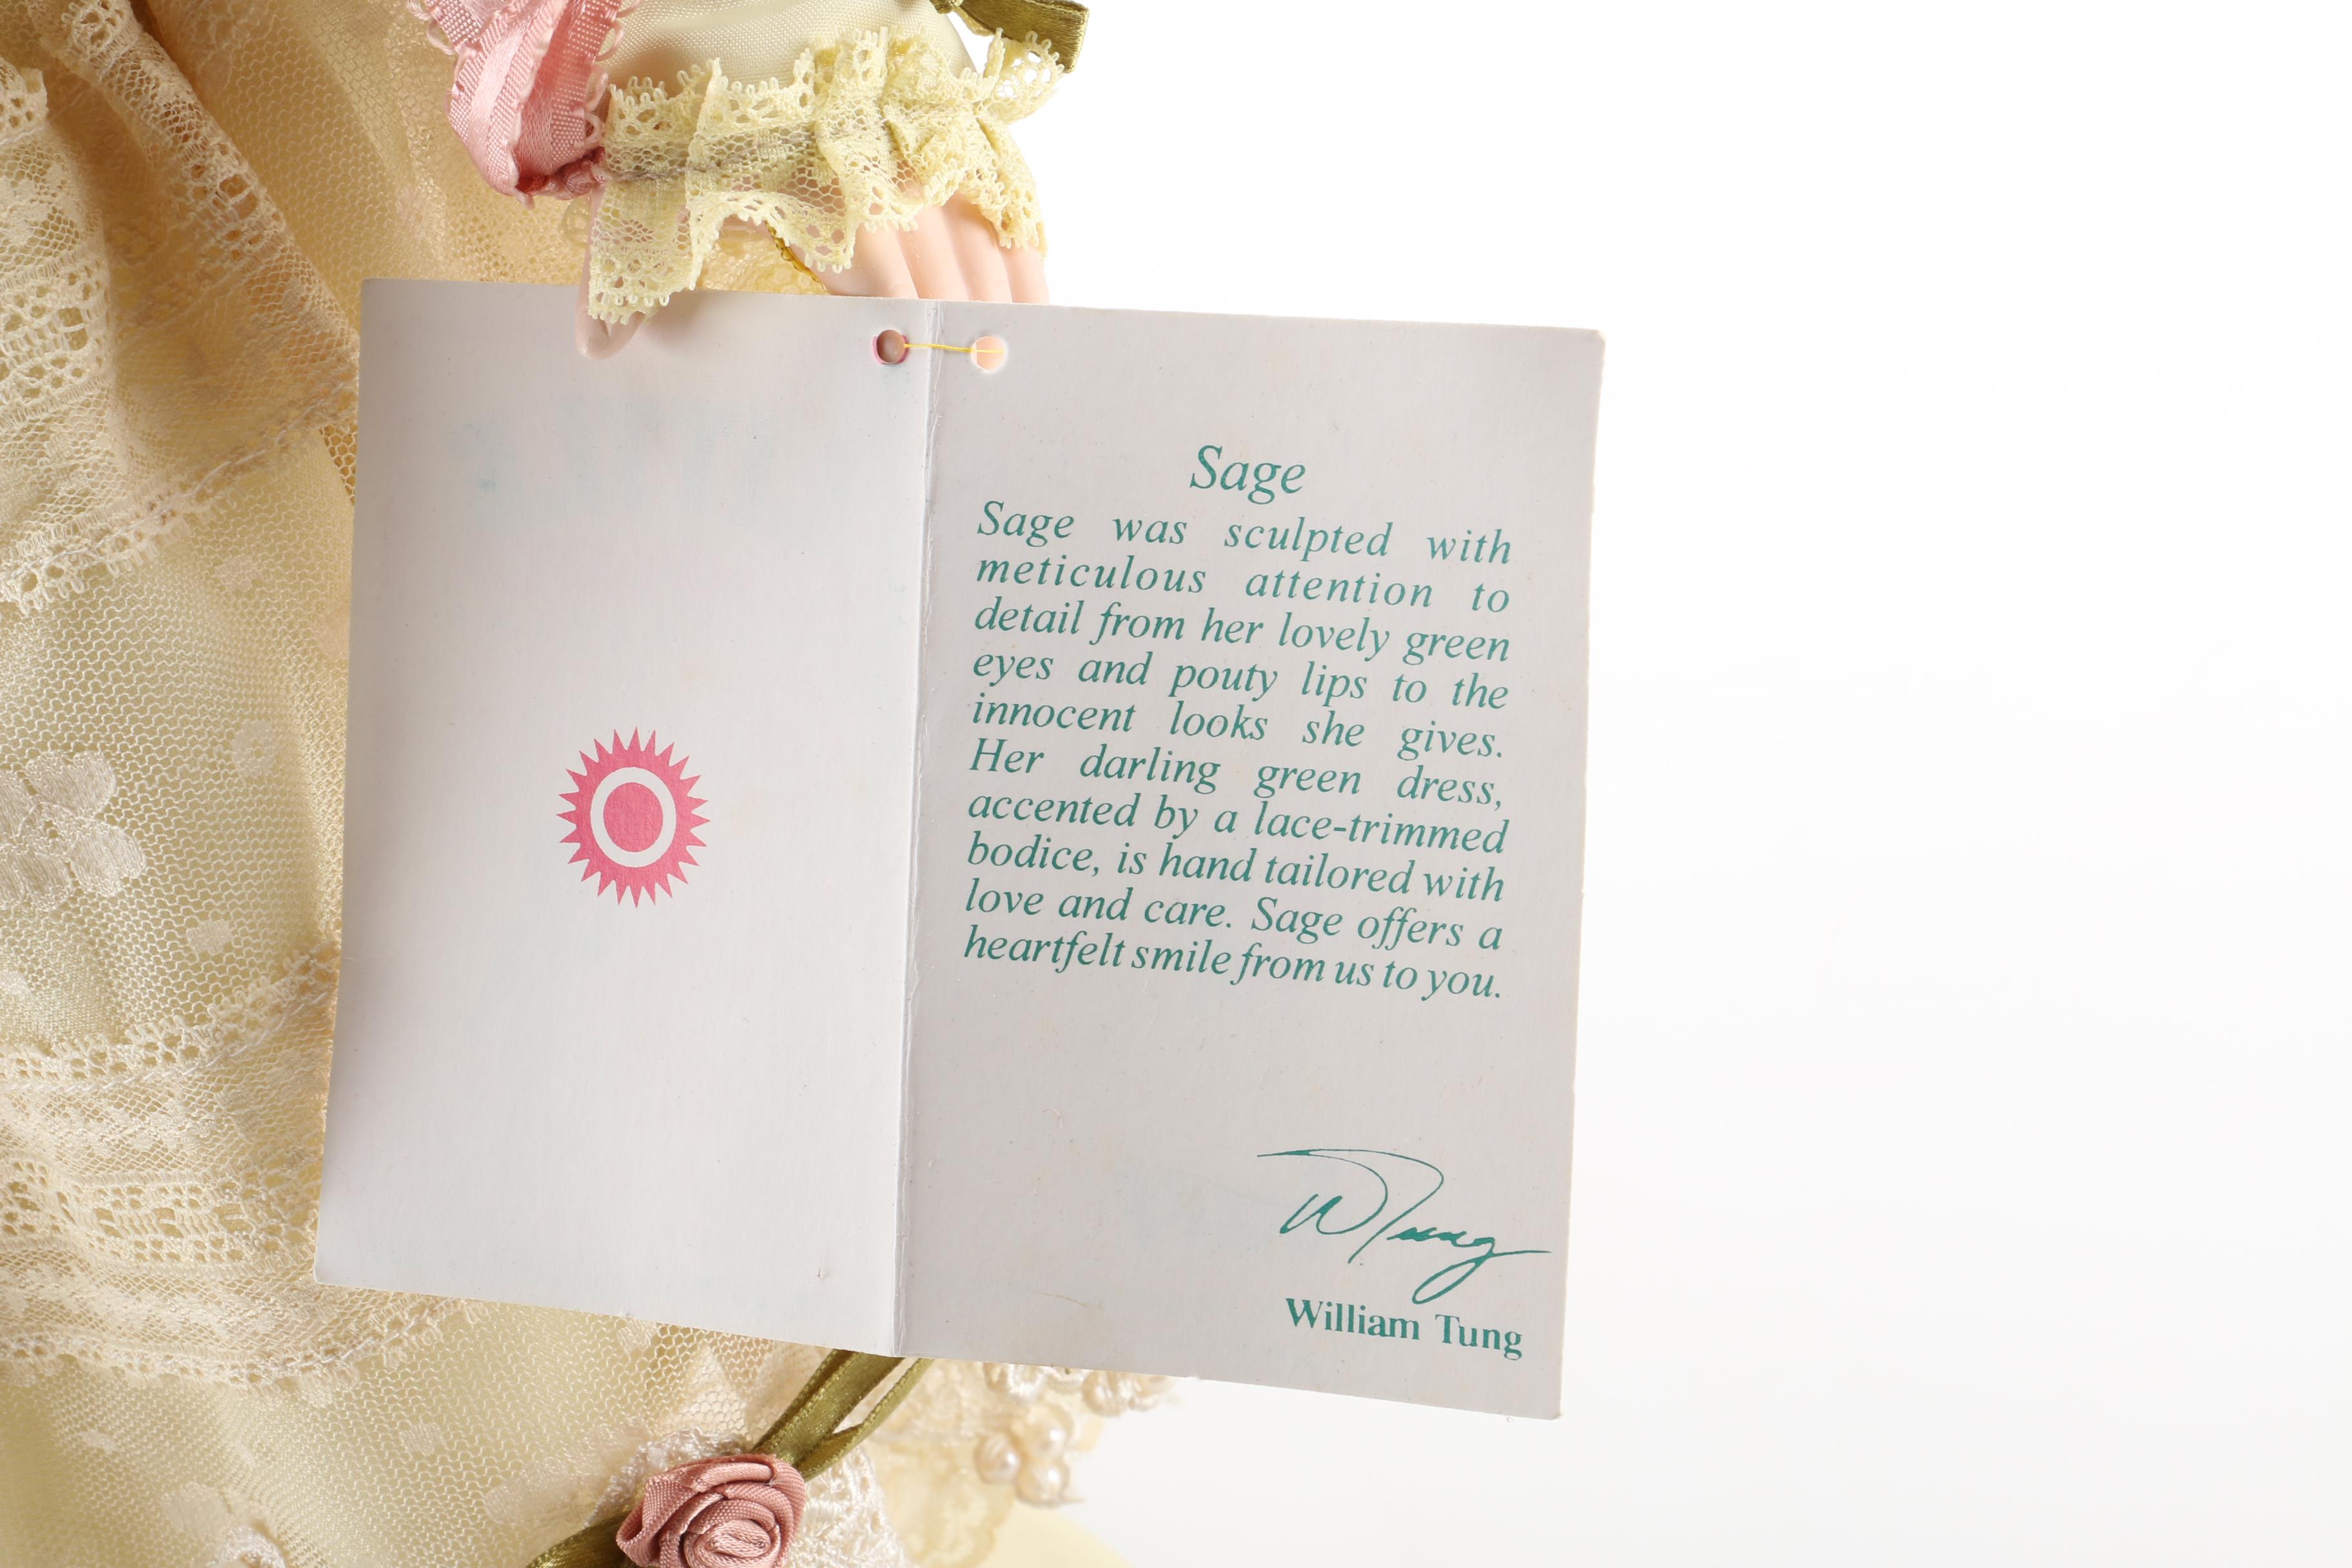 Sage
Sage was sculpted with
meticulous attention to
detail from her lovely green
eyes and pouty lips to the
innocent looks she gives.
Her darling green dress,
accented by a lace-trimmed
bodice, is hand tailored with
love and care. Sage offers a
heartfelt smile from us to you.
W Tung
William Tung